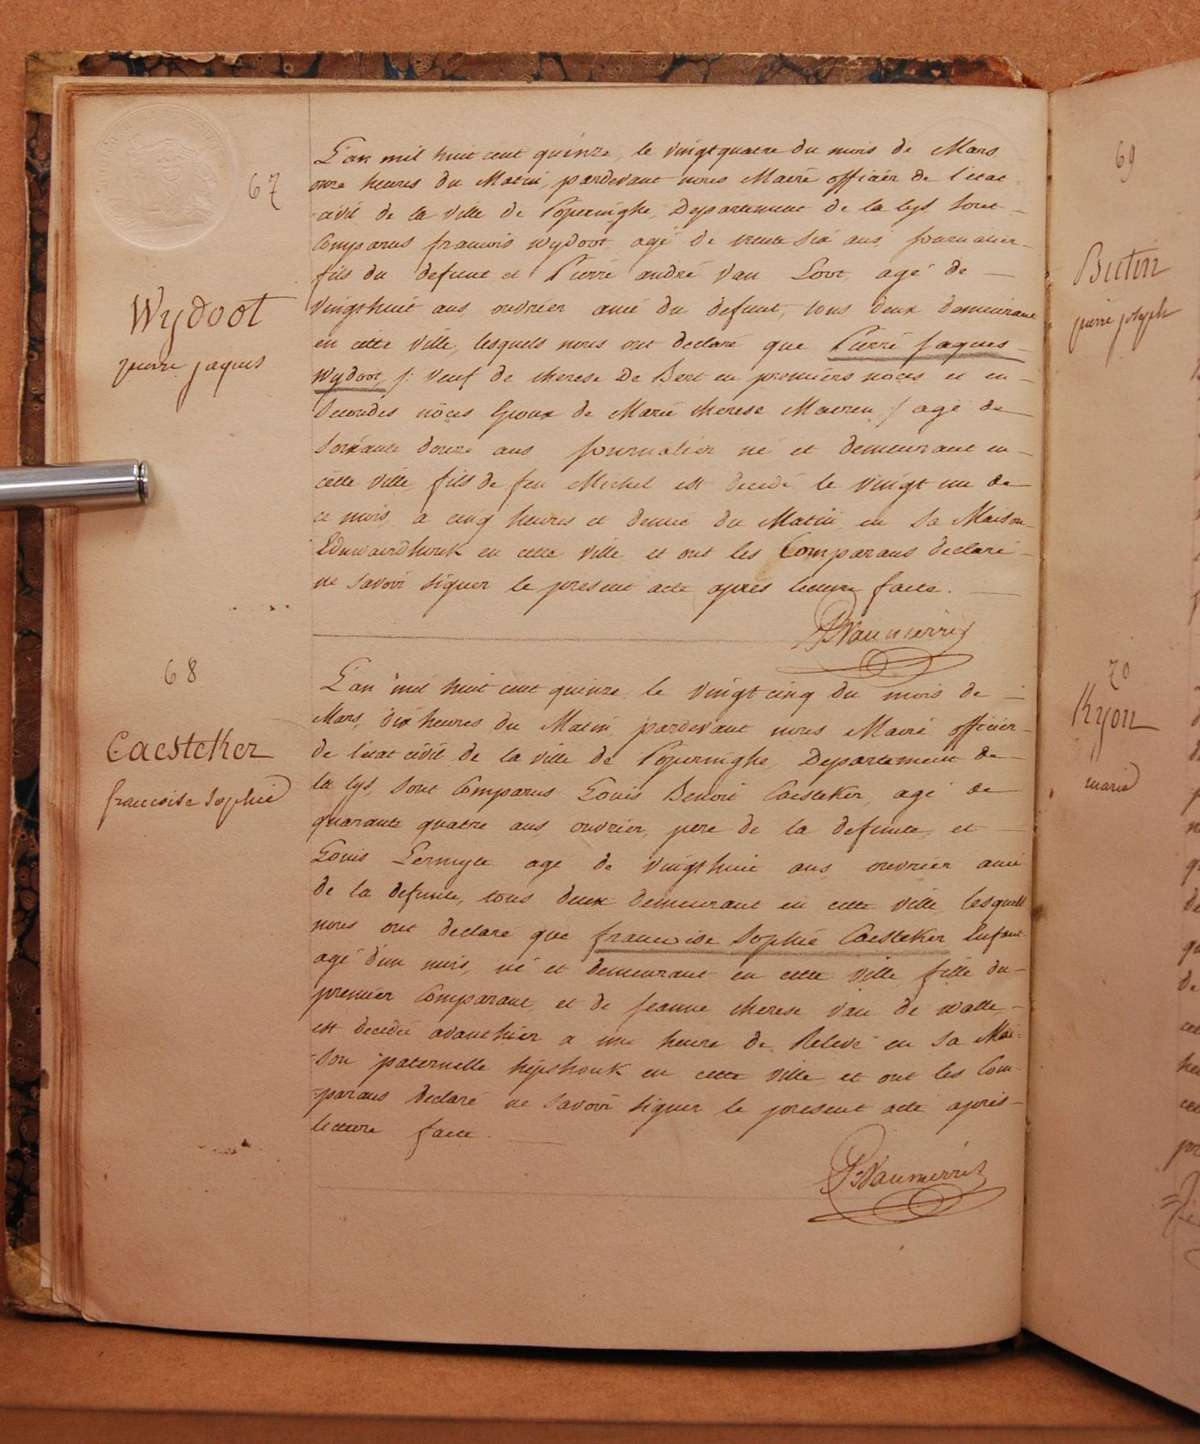 67
Wydoot
pierre jaques
L'an mil huit cent quinze, le vingtquatre du mois de Mars
onze heures du Matin, pardevant nous Maire officier de l'etat
civil de la ville de Poperinghe, Departement de la lys sont
Comparus francois Wydoot, agé de trente six ans journalier
fils du defunt et Pierre andré Van Loot, agé de
vingthuit ans ouvrier ami du defunt, tous deux demeurant
en cette ville, lesquels nous ont declaré que Pierre Jaques
Wydoot, /: veuf de therese De Bert en premiers nôces et en
Secondes nôces Epoux de Marie therese Maereu / agé de
soixante douze ans journalier né et demeurant en
cette ville, fils de feu Michel est decedé le vingt un de
ce mois, à cinq heures et demie du Matin, en sa Maison
Eduwaerdhouk en cette ville et ont les Comparans declaré
ne savoir signer le present acte après lecture faite.
PVanmerris
68
Caesteker
francoise Sophie
L'an mil huit cent quinze, le vingtcinq du mois de
Mars, dix heures du Matin, pardevant nous Maire officier
de l'etat civil de la ville de Poperinghe, Departement de
la lys, sont Comparus Louis Benoit Caesteker, agé de
quarante quatre ans ouvrier, pere de la defunte, et
Louis agé de vingthuit ans ouvrier ami
de la defunte, tous deux demeurant en cette ville, lesquels
nous ont declaré que francoise Sophie Caesteker Enfant
agé d'un mois, né et demeurant en cette ville, fille du
premier Comparant, et de Jeanne therese Van de walle
est decedée avanthier à une heure de Relevé en sa Mai-
-son paternelle hipshouk en cette ville et ont les Com-
-parans declaré ne savoir signer le present acte après
lecture faite.
PVanmerris
69
Butin
pierre joseph
70
Ryon
marie